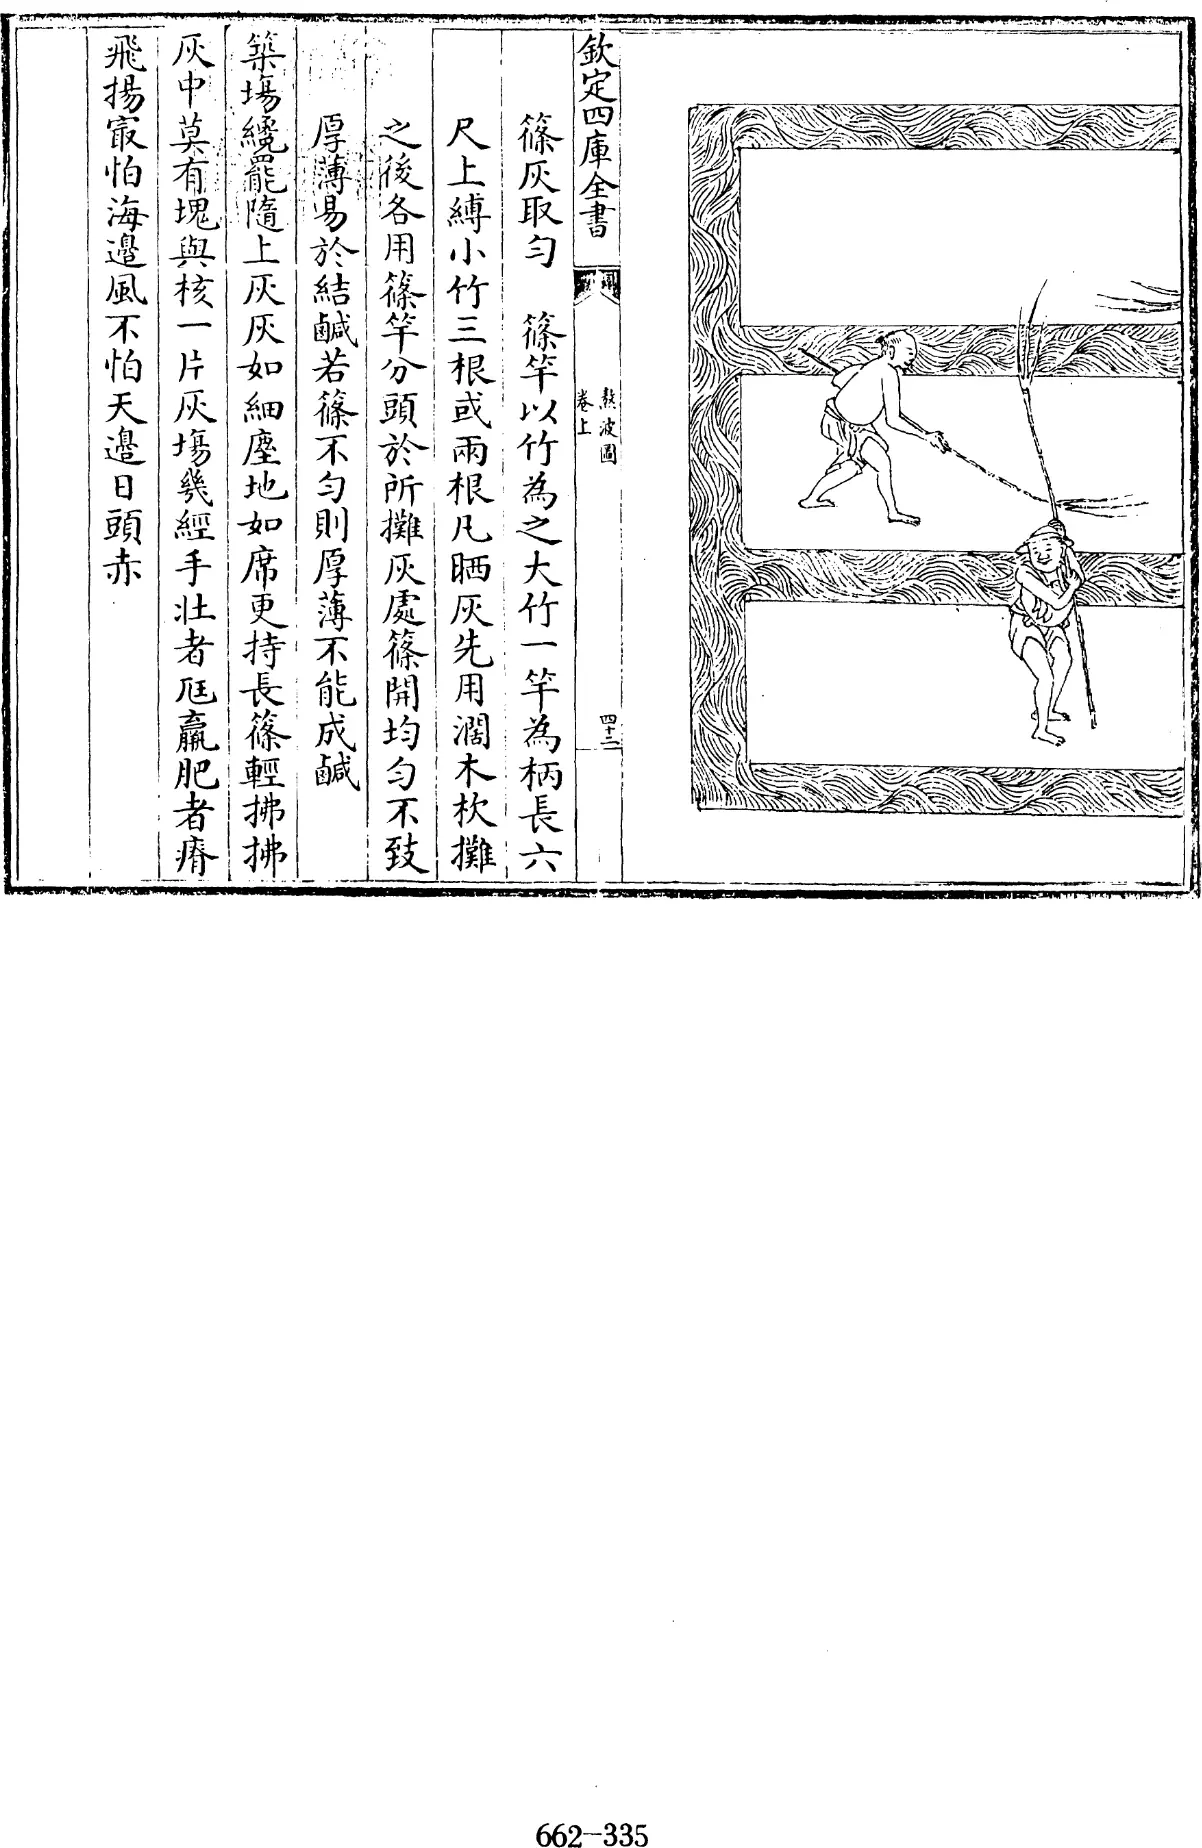 欽定四庫全書
熬波圖
卷上
四十二
篠灰取勻　篠竿以竹為之大竹一竿為柄長六
尺上縛小竹三根或兩根凡晒灰先用濶木杴攤
之後各用篠竿分頭於所攤灰處篠開均勻不致
厚薄易於結鹹若篠不勻則厚薄不能成鹹
築塲纔罷隨上灰灰如細塵地如席更持長篠輕拂拂
灰中莫有塊與核一片灰塲幾經手壯者尫羸肥者瘠
飛揚㝡怕海邉風不怕天邉日頭赤
662-335